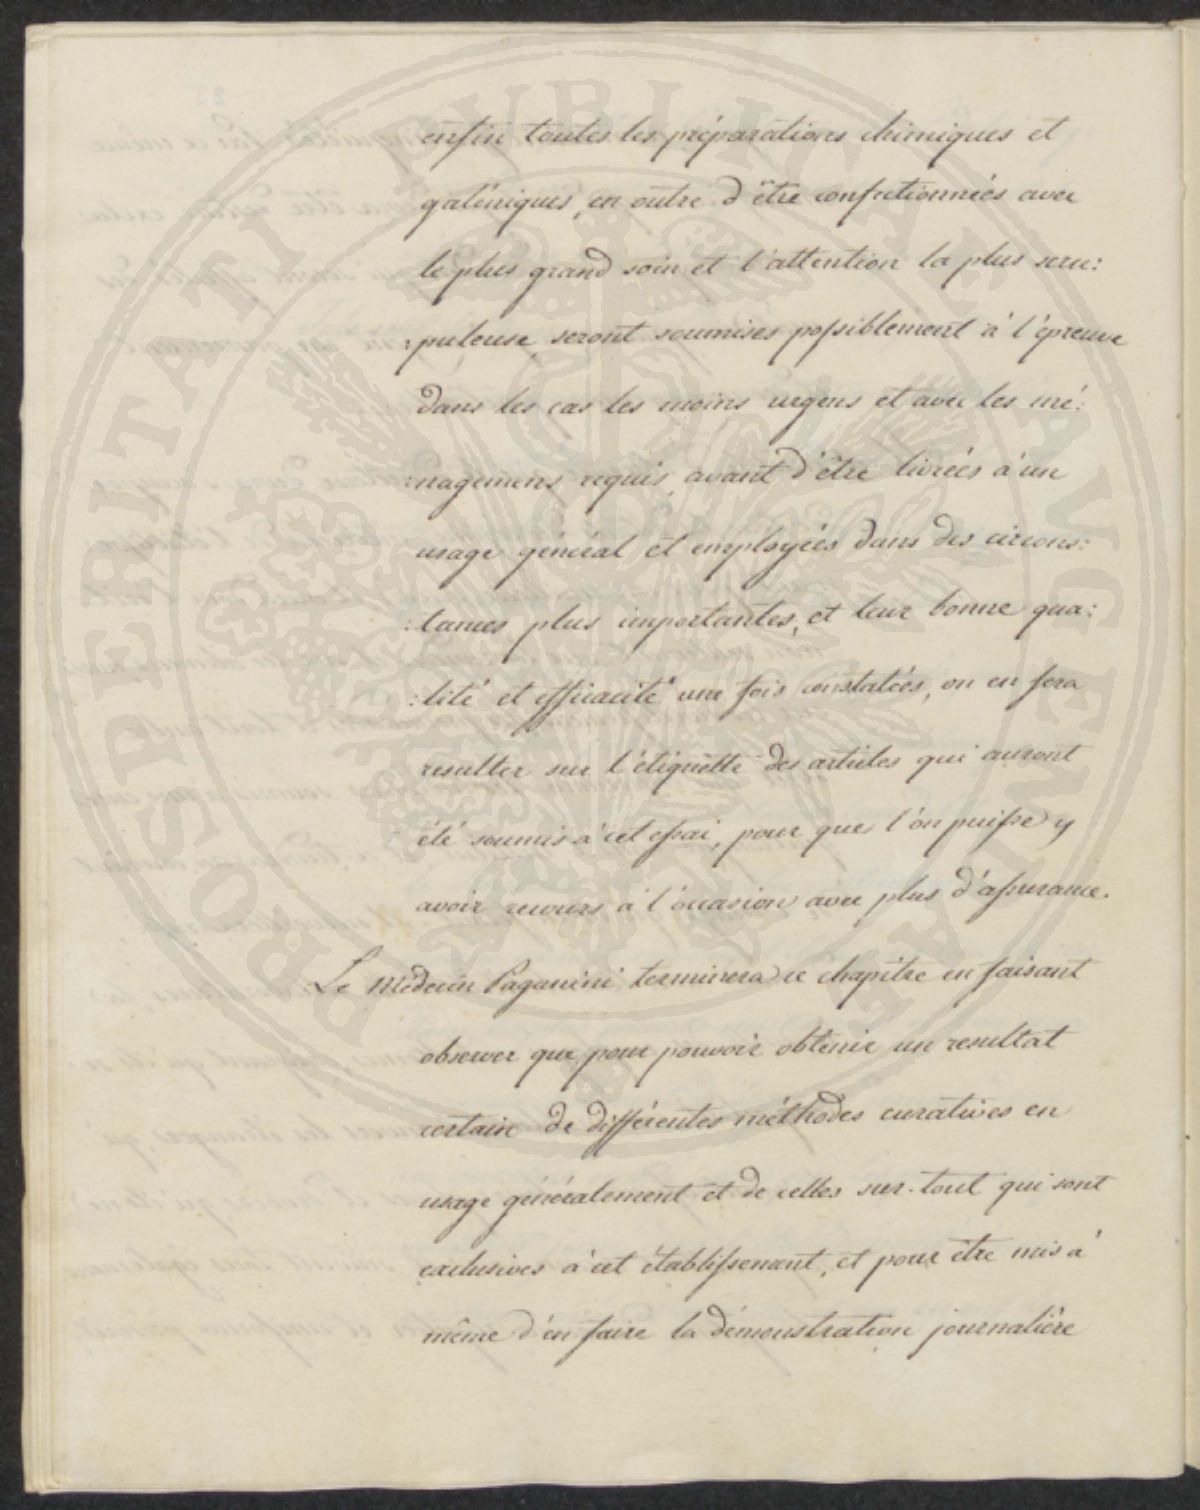 enfin toutes les préparations chimiques et
galéniques, en outre d'être confectionnées avec
le plus grand soin et l'attention la plus scru:
:puleuse, seront soumises possiblement à l'épreuve
dans les cas les moins urgens et avec les mé:
:nagemens requis, avant d'être livrées à un
usage général et employées dans des circons:
:tances plus importantes, et leur bonne qua:
:lité et efficacité une fois constatées, on en fera
resulter sur l'étiquette des articles qui auront
été soumis à cet essai, pour que l'on puisse y
avoir recours à l'occasion avec plus d'assurance.
Le Médecin Paganini terminera ce chapitre en faisant
observer que pour pouvoir obtenir un resultat
certain de différentes méthodes curatives en
usage généralement et de celles sur-tout qui sont
exclusives à cet établissement, et pour être mis à
même d'en faire la démonstration journalière
PROSPERITATI PUBLICAE AUGENDAE